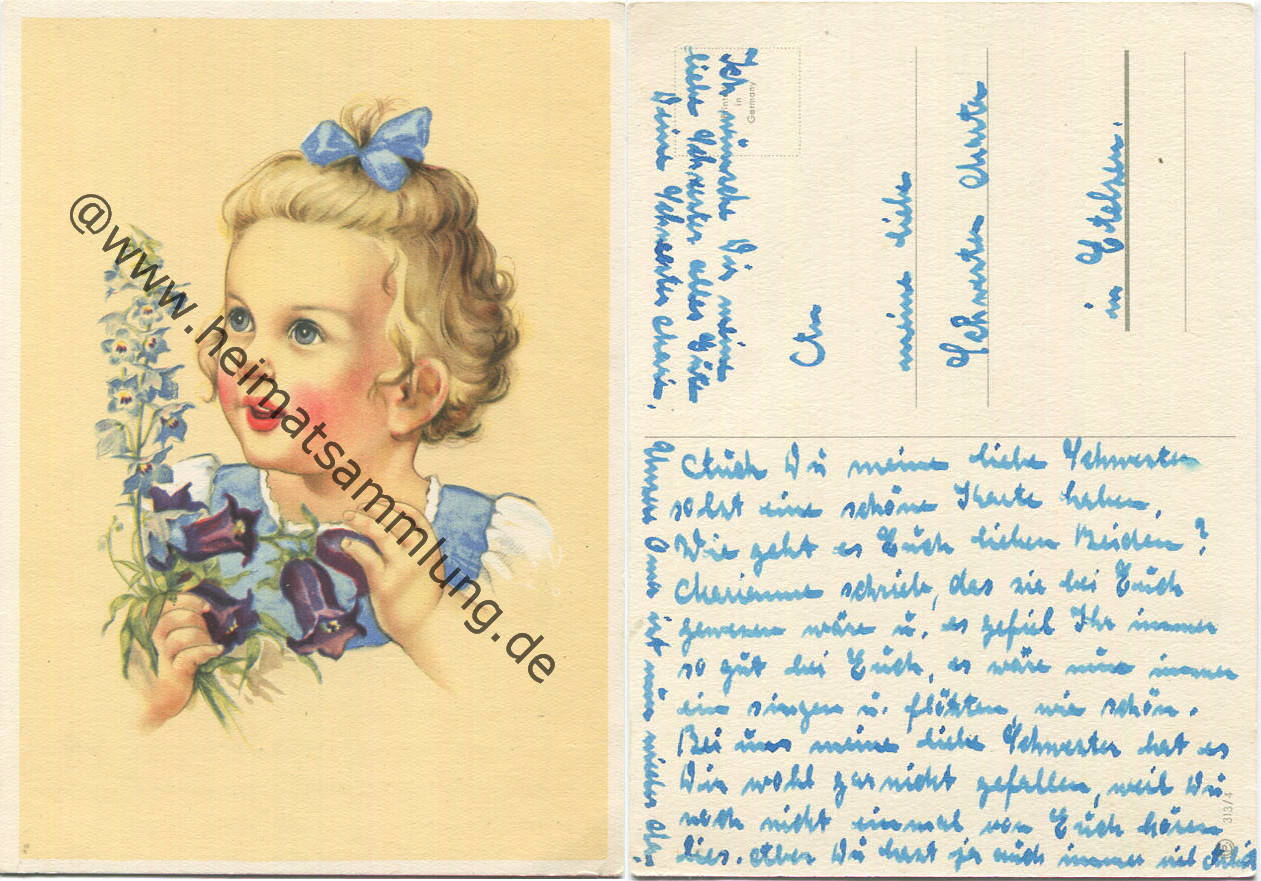 @www.heimatsammlung.de
Auch Du meine liebe Schwester
solst eine schöne Karte haben,
Wie geht es Euch lieben Beiden?
Marianne schrieb, das sie bei Euch
gewesen wäre u. es gefiel Ihr immer
so gut bei Euch, es wäre nur immer
ein singen u. flöhten, wie schön.
Bei uns meine liebe Schwester hat es
Dir wohl garnicht gefallen, weil Du
noch nicht einmal von Euch hören
lies. Aber Du hast ja auch immer viel
Unsere Oma ist nun wieder
Ich wünsche Dir meine
liebe Schwester alles Gute
Deine Schwester Marie.
An
meine liebe
Schwester Martha
in Etelsen.
in
Germany
313/4